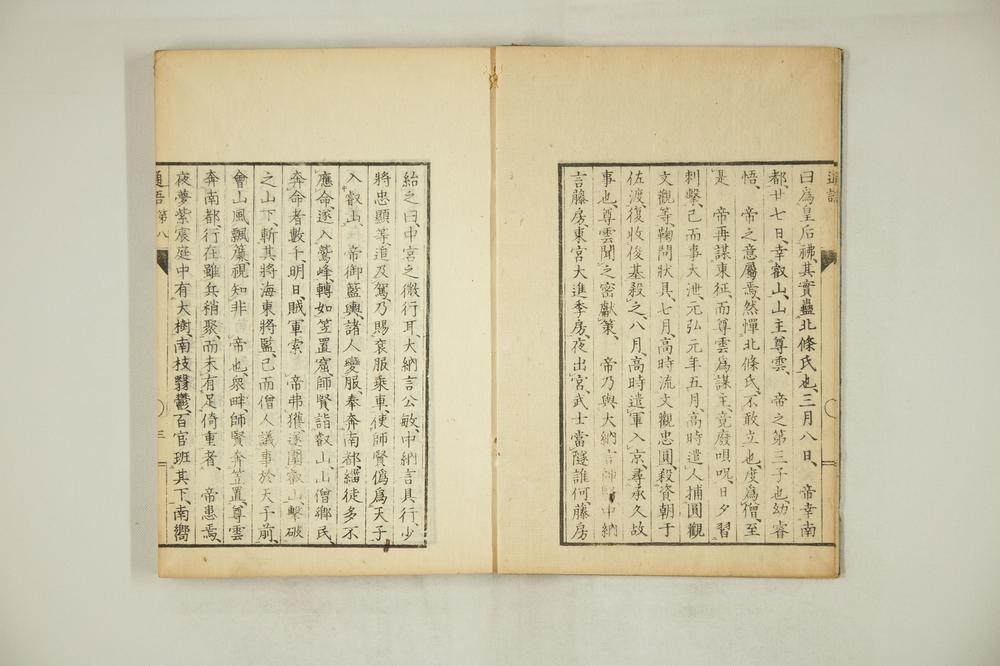 通語
曰爲皇后禱、其實蠱北條氏也、三月八日、帝幸南
都、廿七日、幸叡山、山主尊雲、帝之第三子也、幼睿
悟、帝之意屬焉、然憚北條氏、不敢立也、度爲僧、至
是、帝再謀東征、而尊雲爲謀主、竟廢唄呪、日夕習
刺擊、已而事大泄、元弘元年五月、高時遣人捕圓觀
文觀等、鞠問狀具、七月、高時流文觀忠圓、殺資朝于
佐渡、復收俊基殺之、八月、高時遣軍入京、尋承久故
事也、尊雲聞之密獻策、帝乃與大納言師賢中納
言藤房、東宮大進季房、夜出宮、武士當隧誰何、藤房
紿之曰、中宮之微行耳、大納言公敏、中納言具行、少
將忠顯等、追及駕、乃賜袞服乘車、使師賢僞爲天子
入叡山、帝御籃輿、諸人變服奉奔南都、緇徒多不
應命、遂入鷲峰、轉如笠置窟、師賢詣叡山、山僧鄕民、
奔命者數千、明日、賊軍索帝弗獲、遂圍叡山、擊破
之山下、斬其將海東將監、已而僧人議事於天子前、
會山風飄簾、視知非帝也、衆畔、師賢奔笠置、尊雲
奔南都、行在雖兵稍聚、而未有足倚重者、帝患焉、
夜夢紫宸庭中有大樹、南枝翳鬱、百官班其下、南嚮
通語 第八
三